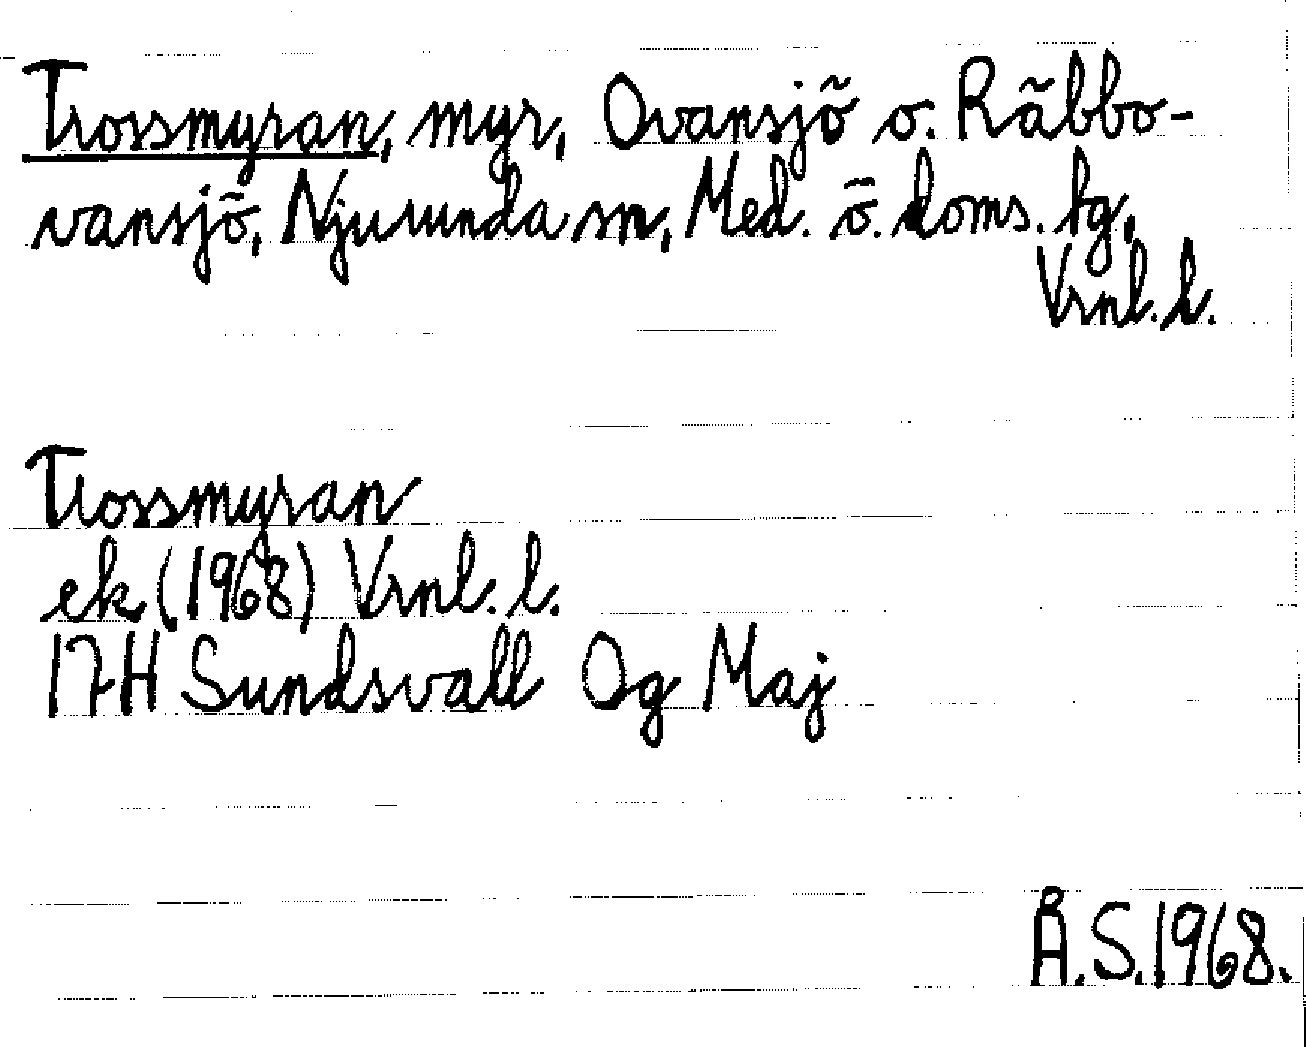 Trossmyran, myr, Ovansjö o. Räbbo-
vansjö, Njurunda sn, Med. ö. doms. tg,
Vrnl. l.
Trossmyran
ek (1968) Vrnl. l.
17H Sundsvall Og Maj
Å.S.1968.